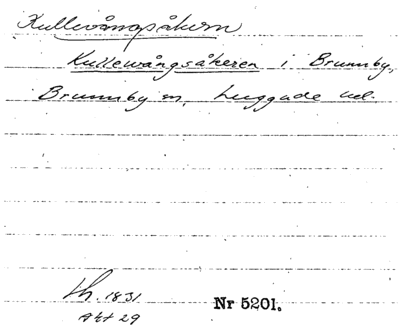 Kullevångsåkern
Kullewångsåkeren i Brunnby,
Brunnby sn, Luggude hd.
Lh. 1831
Akt 29
Nr 5201.